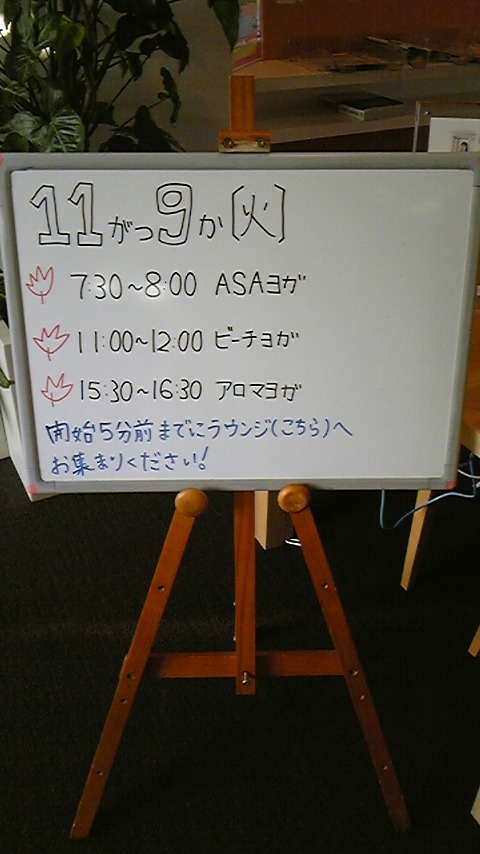 11がつ9か[火]
7:30~8:00 ASAヨガ
11:00~12:00 ビーチヨガ
15:30~16:30 アロマヨガ
開始5分前までにラウンジ(こちら)へ
お集まりください!